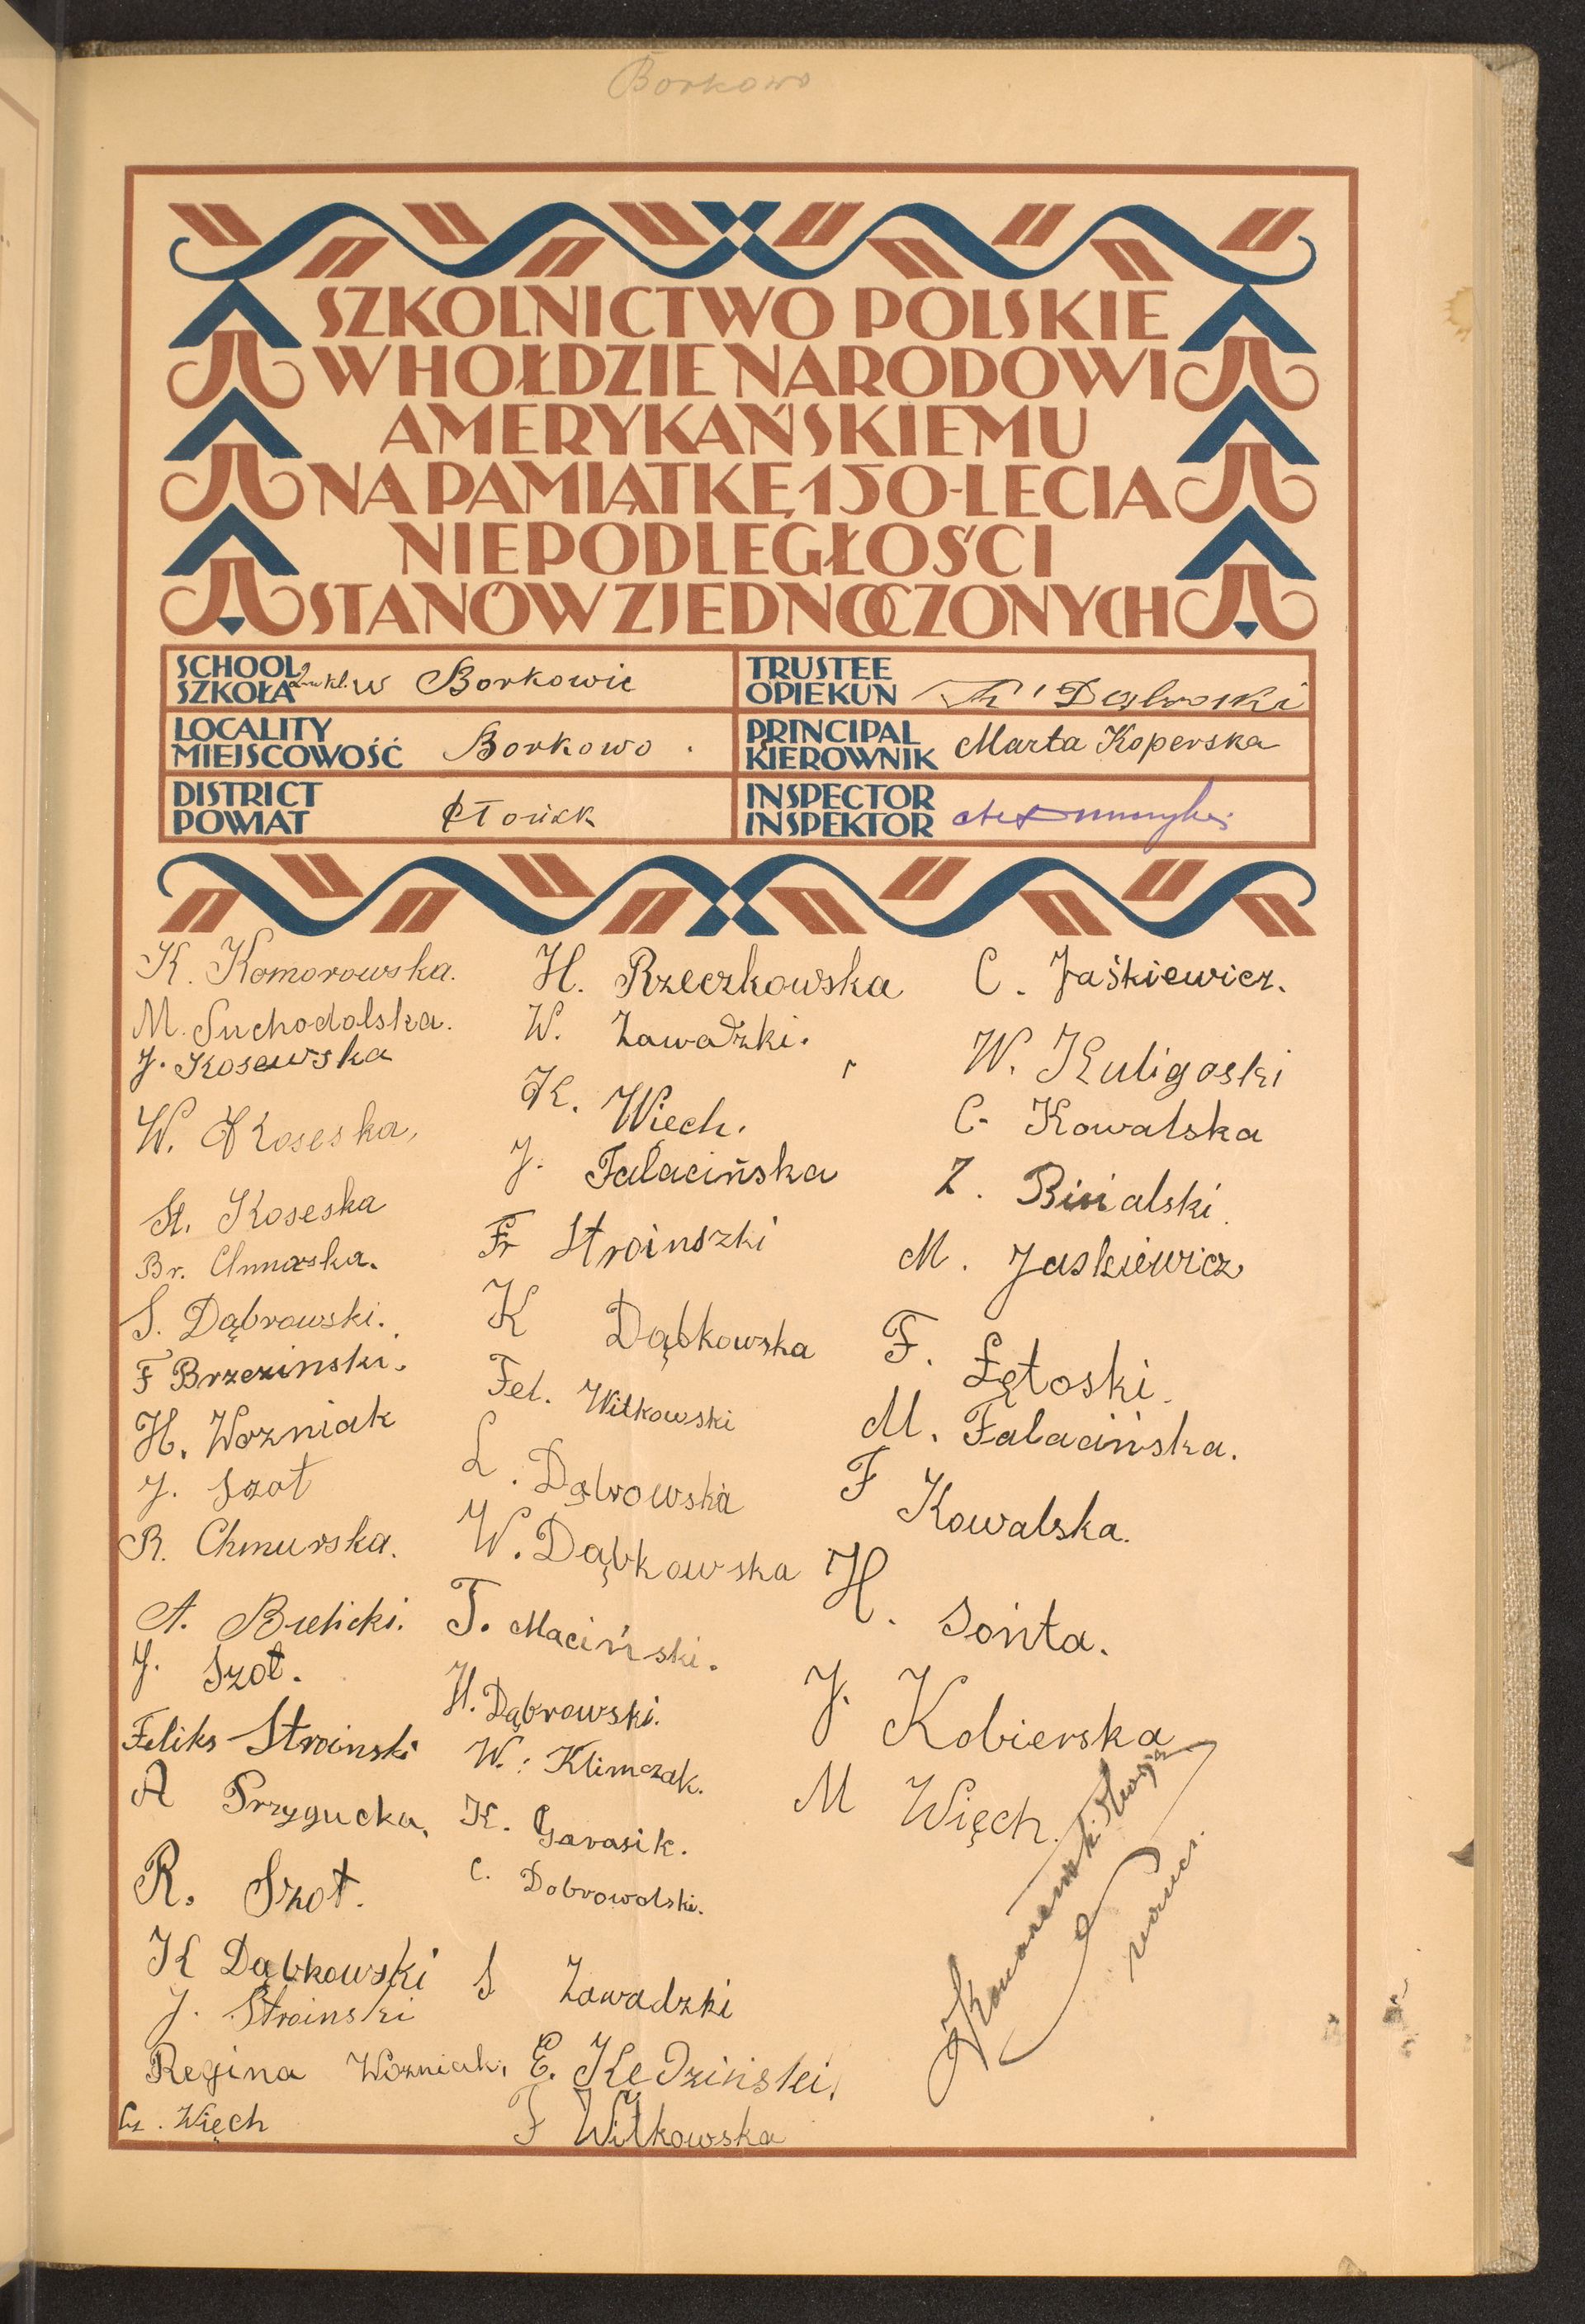 Borkowo
SZKOLNICTWO POLSKIE
W HOŁDZIE NARODOWI
AMERYKAŃSKIEMU
NA PAMIĄTKĘ 150-LECIA
NIEPODLEGŁOŚCI
STANÓW ZJEDNOCZONYCH
SCHOOL
SZKOŁA 2-u kl. w Borkowie
TRUSTEE
OPIEKUN
LOCALITY
MIEJSCOWOŚĆ Borkowo.
PRINCIPAL
KIEROWNIK Marta Koperska
DISTRICT
POWIAT Płońsk
INSPECTOR
INSPEKTOR
K. Komorowska.
M. Suchodolska.
J. Kosewska
W. Koseska,
St. Koseska
Br. Chmurska.
S. Dąbrowski.
F Brzezinski.
H. Wozniak
J. Szot
R. Chmurska.
A. Bielicki.
J. Szot.
Feliks Stroinski
A Przygucka,
R. Szot.
K Dąbkowski
J. Stroinski
Regina Wozniak,
Cz. Więch
H. Rzeczkowska
W. Zawadzki.
K. Wiech.
J. Falacińska
Fr Stroinszki
K Dąbkowska
Fel. Witkowski
L. Dąbrowska
W. Dąbkowska
T. Maciński.
H. Dąbrowski.
W. Klimczak.
K. Garasik.
C. Dobrowolski.
S Zawadzki
E. Kedziński,
F Witkowska
C. Jaśkiewicz.
W. Kuligoski
C. Kowalska
Z. Binialski.
M. Jaskiewicz
F. Łętoski.
M. Falacińska.
F Kowalska.
H. Sońta.
J. Kobierska
M Więch.
naucz.